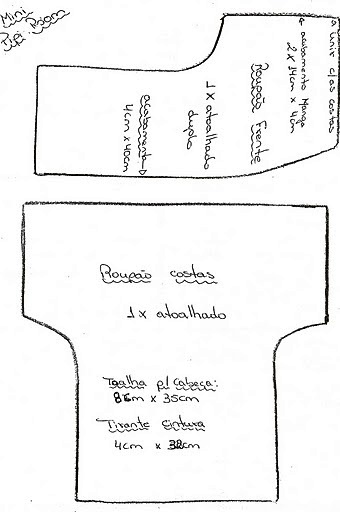 Mini
Pipi Room
unir c/as costas
acabamento Manga
2 x 14cm x 4cm
Roupão Frente
1 x atoalhado
duplo
acabamento
4cm x 40cm
Roupão costas
1 x atoalhado
Toalha p/ Cabeça:
cm x 35cm
Tirante Cintura
4cm x cm